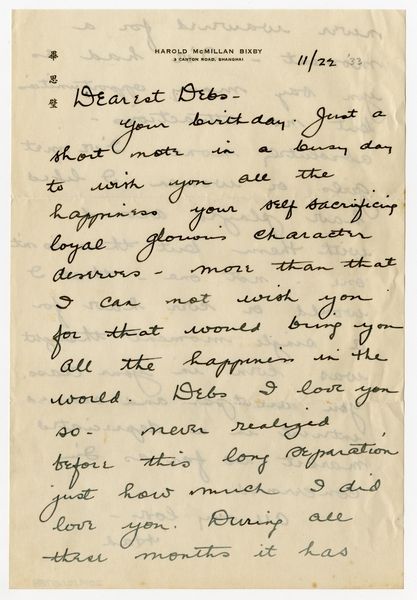 HAROLD McMILLAN BIXBY
3 CANTON ROAD, SHANGHAI
畢
思
璧
11/22 '33
Dearest Debs -
Your birthday. Just a
short note in a busy day
to wish you all the
happiness your self sacrificing
loyal glorious character
deserves - more than that
I can not wish you
for that would bring you
all the happiness in the
world. Debs I love you
so - never realized
before this long separation
just how much I did
love you. During all
these months it has